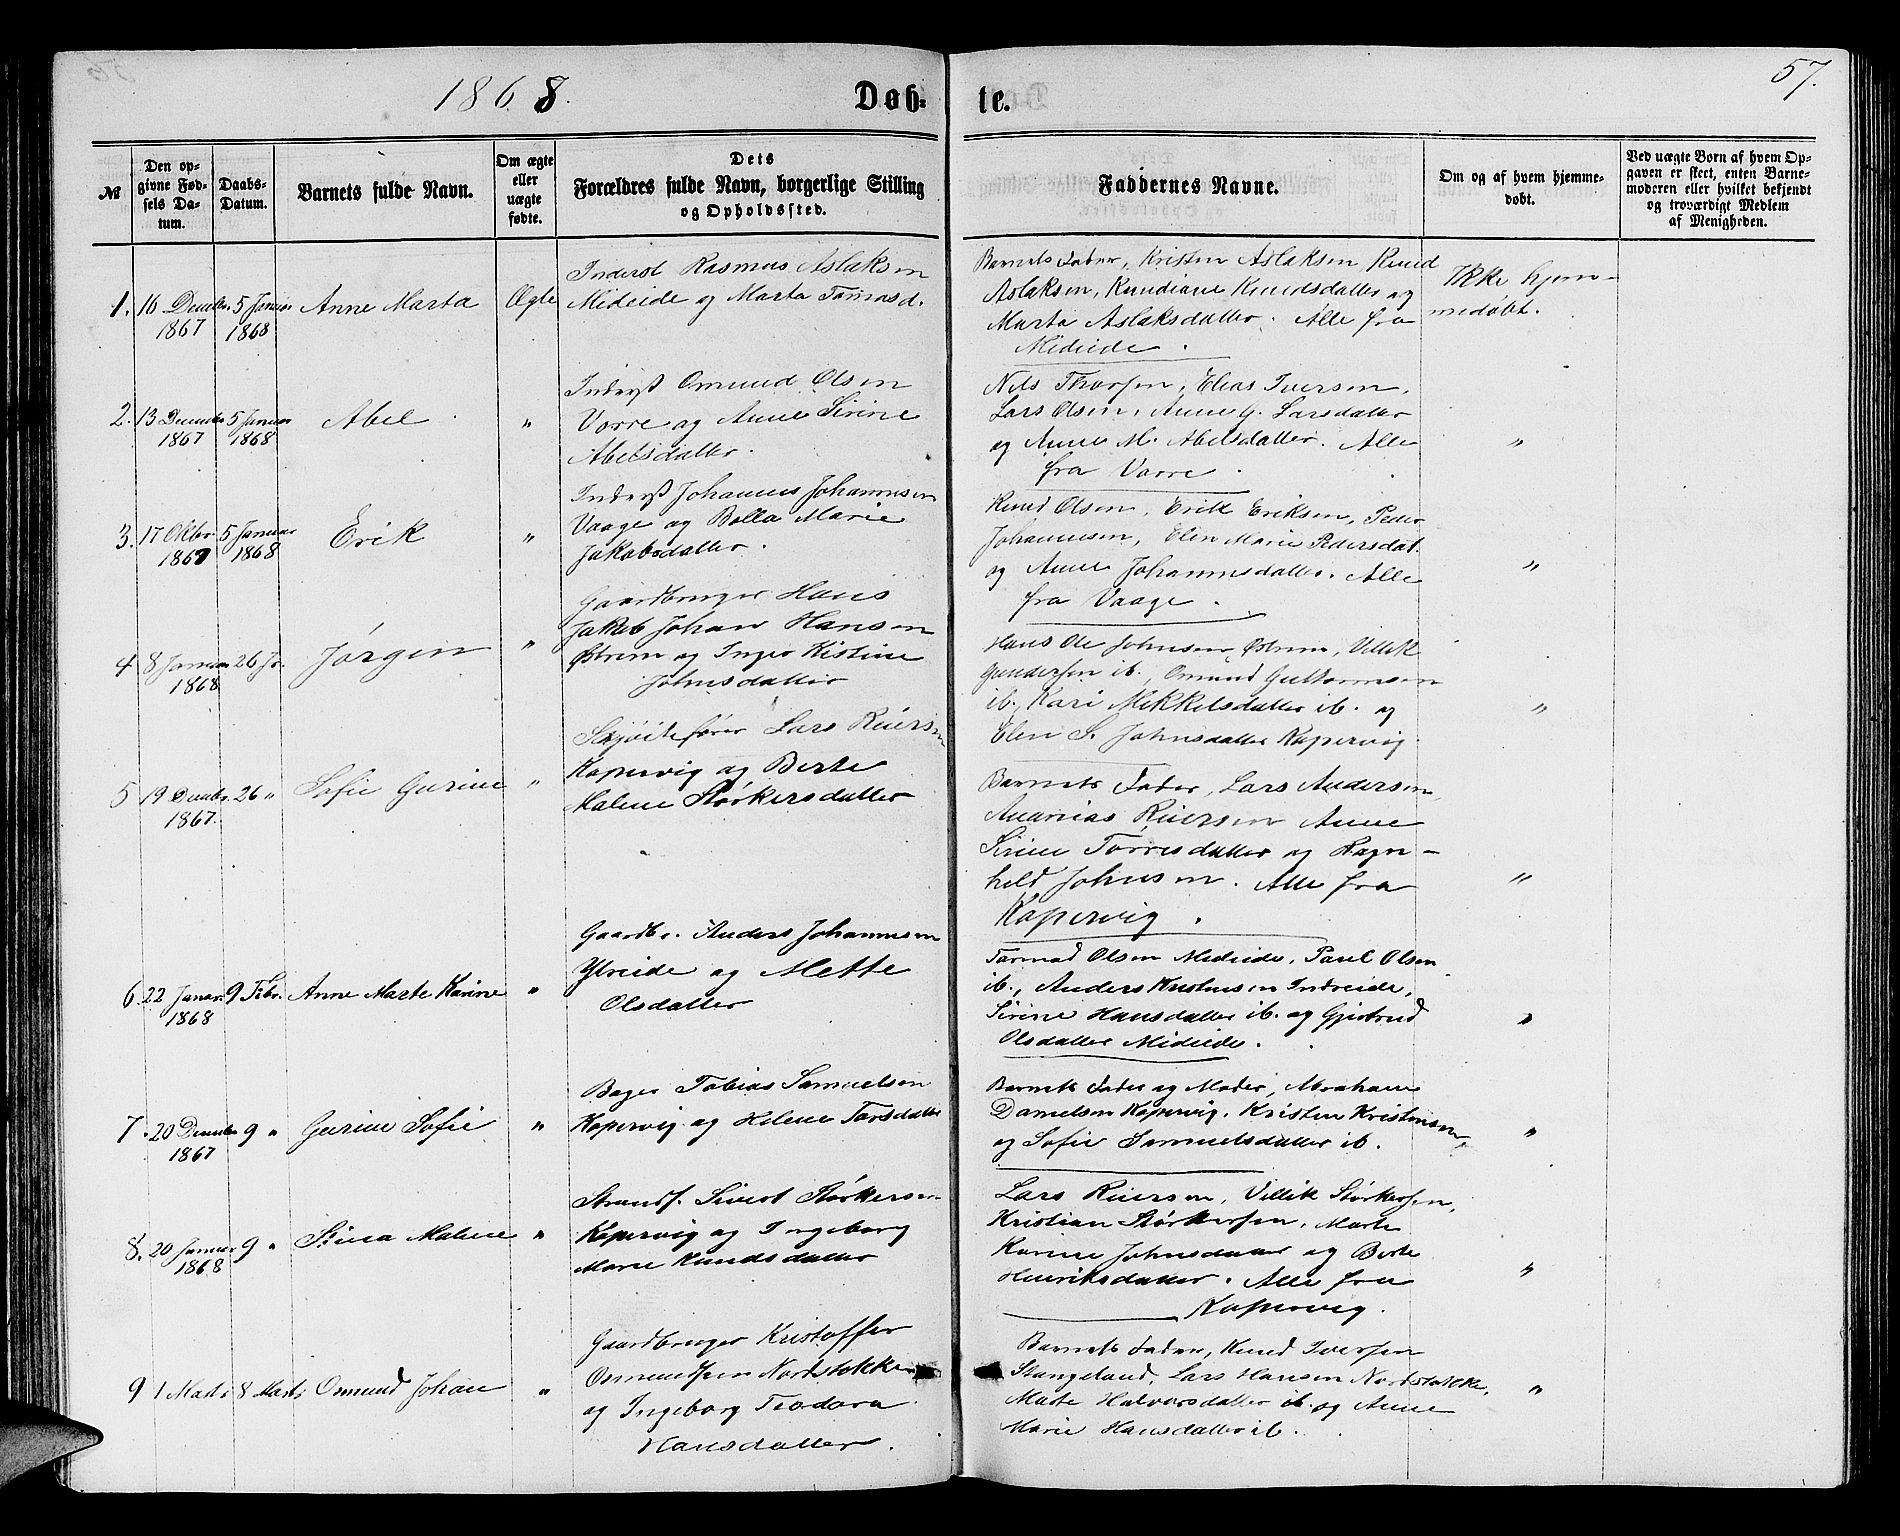 1868.
Døb-
te.
57.
№
Den op-
givne Fød-
sels Da-
tum.
Daabs-
Datum.
Barnets fulde Navn.
Om ægte
eller
uægte
fødte.
Dets
Forældres fulde Navn, borgerlige Stilling
og Opholdssted.
Faddernes Navne.
Om og af hvem hjemme-
døbt.
Ved uægte Børn af hvem Op-
gaven er skeet, enten Barne-
moderen eller hvilket bekjendt
og troværdigt Medlem
af Menigheden.
1. 16 Decembr. 1867
5 Januar 1868
Anne Marta
Ægte
Inderst Rasmus Aslaksen
Mideide og Marta Tomasd.
Barnets Fader, Kristen Aslaksen Knud
Aslaksen, Knudiane Knudsdatter og
Marta Aslaksdatter. Alle fra
Mideide.
Ikke hjem-
medøbt.
2. 13 Decembr 1867
5 Januar 1868
Abel
"
Inderst Omund Olsen
Vorre og Anne Sirine
Abelsdatter.
Nils Thorsen, Elias Iversen,
Lars Olsen, Anne G. Larsdatter
og Anne M. Abelsdatter. Alle
fra Vorre.
"
3. 17 Oktbr. 1867
5 Januar 1868
Erik
"
Inderst Johannes Johannesen
Vaage og Bolla Marie
Jakobsdatter.
Knud Olsen, Erik Eriksen, Peder
Johannesen, Elen Marie Pedersdat.
og Anne Johannesdatter. Alle
fra Vaage.
"
4 8 Januar 1868
26 Ja.
Jørgen
"
Gaardbruger Hans
Jakob Johan Hansen
Østrem og Inger Kistine
Johnsdatter
Hans Ole Johnsen Østrem, Villik
Gundersen ib., Omund Guttormsen
ib., Kari Mikkelsdatter ib. og
Elen S. Johnsdatter Kopervig.
"
5 19 Decembr. 1867.
26 "
Sofie Gurine
"
Skjøitefører Lars Reiersen
Kopervig og Berte
Malene Størkersdatter
Barnets Fader, Lars Andersen,
Ananias Reiersen Anne
Sirine Torresdatter og Ragn-
hild Johnsen. Alle fra
Kopervig.
"
6. 22 Januar. 1868
9 Febr.
Anne Marte Karine
"
Gaardbr. Anders Johannesen
Ytreide og Mette
Olsdatter
Tormod Olsen Mideide, Paul Olsen
ib., Anders Knutsen Indreide,
Sirine Hansdatter ib. og Gjertrud
Olsdatter Mideide.
"
7. 20 Decembr 1867
9 "
Gurine Sofie
"
Bager Tobias Samuelsen
Kopervig og Helene Torsdatter
Barnets Fader og Moder, Abraham
Danielsen Kopervig, Kristen Kristensen
og Sofie Samuelsdatter ib.
"
8. 20 Januar 1868
9 "
Sina Malene
"
Strands. Sivert Størkersen
Kopervig og Ingeborg
Marie Knudsdatter
Lars Reiersen, Villik Størkersen,
Kristian Størkersen, Marte
Karine Johnsdatter og Berte
Henriksdatter. Alle fra
Kopervig.
"
9 1 Marts
8 Marts
Omund Johan
"
Gaardbruger Kristoffer
Osmundsen Nordstokke
og Ingeborg Teodora
Hansdatter.
Barnets Fader, Knud Iversen
Stangeland, Lars Hansen Nordstokke,
Marte Halvorsdatter ib. og Anne
Marie Hansdatter ib.
"